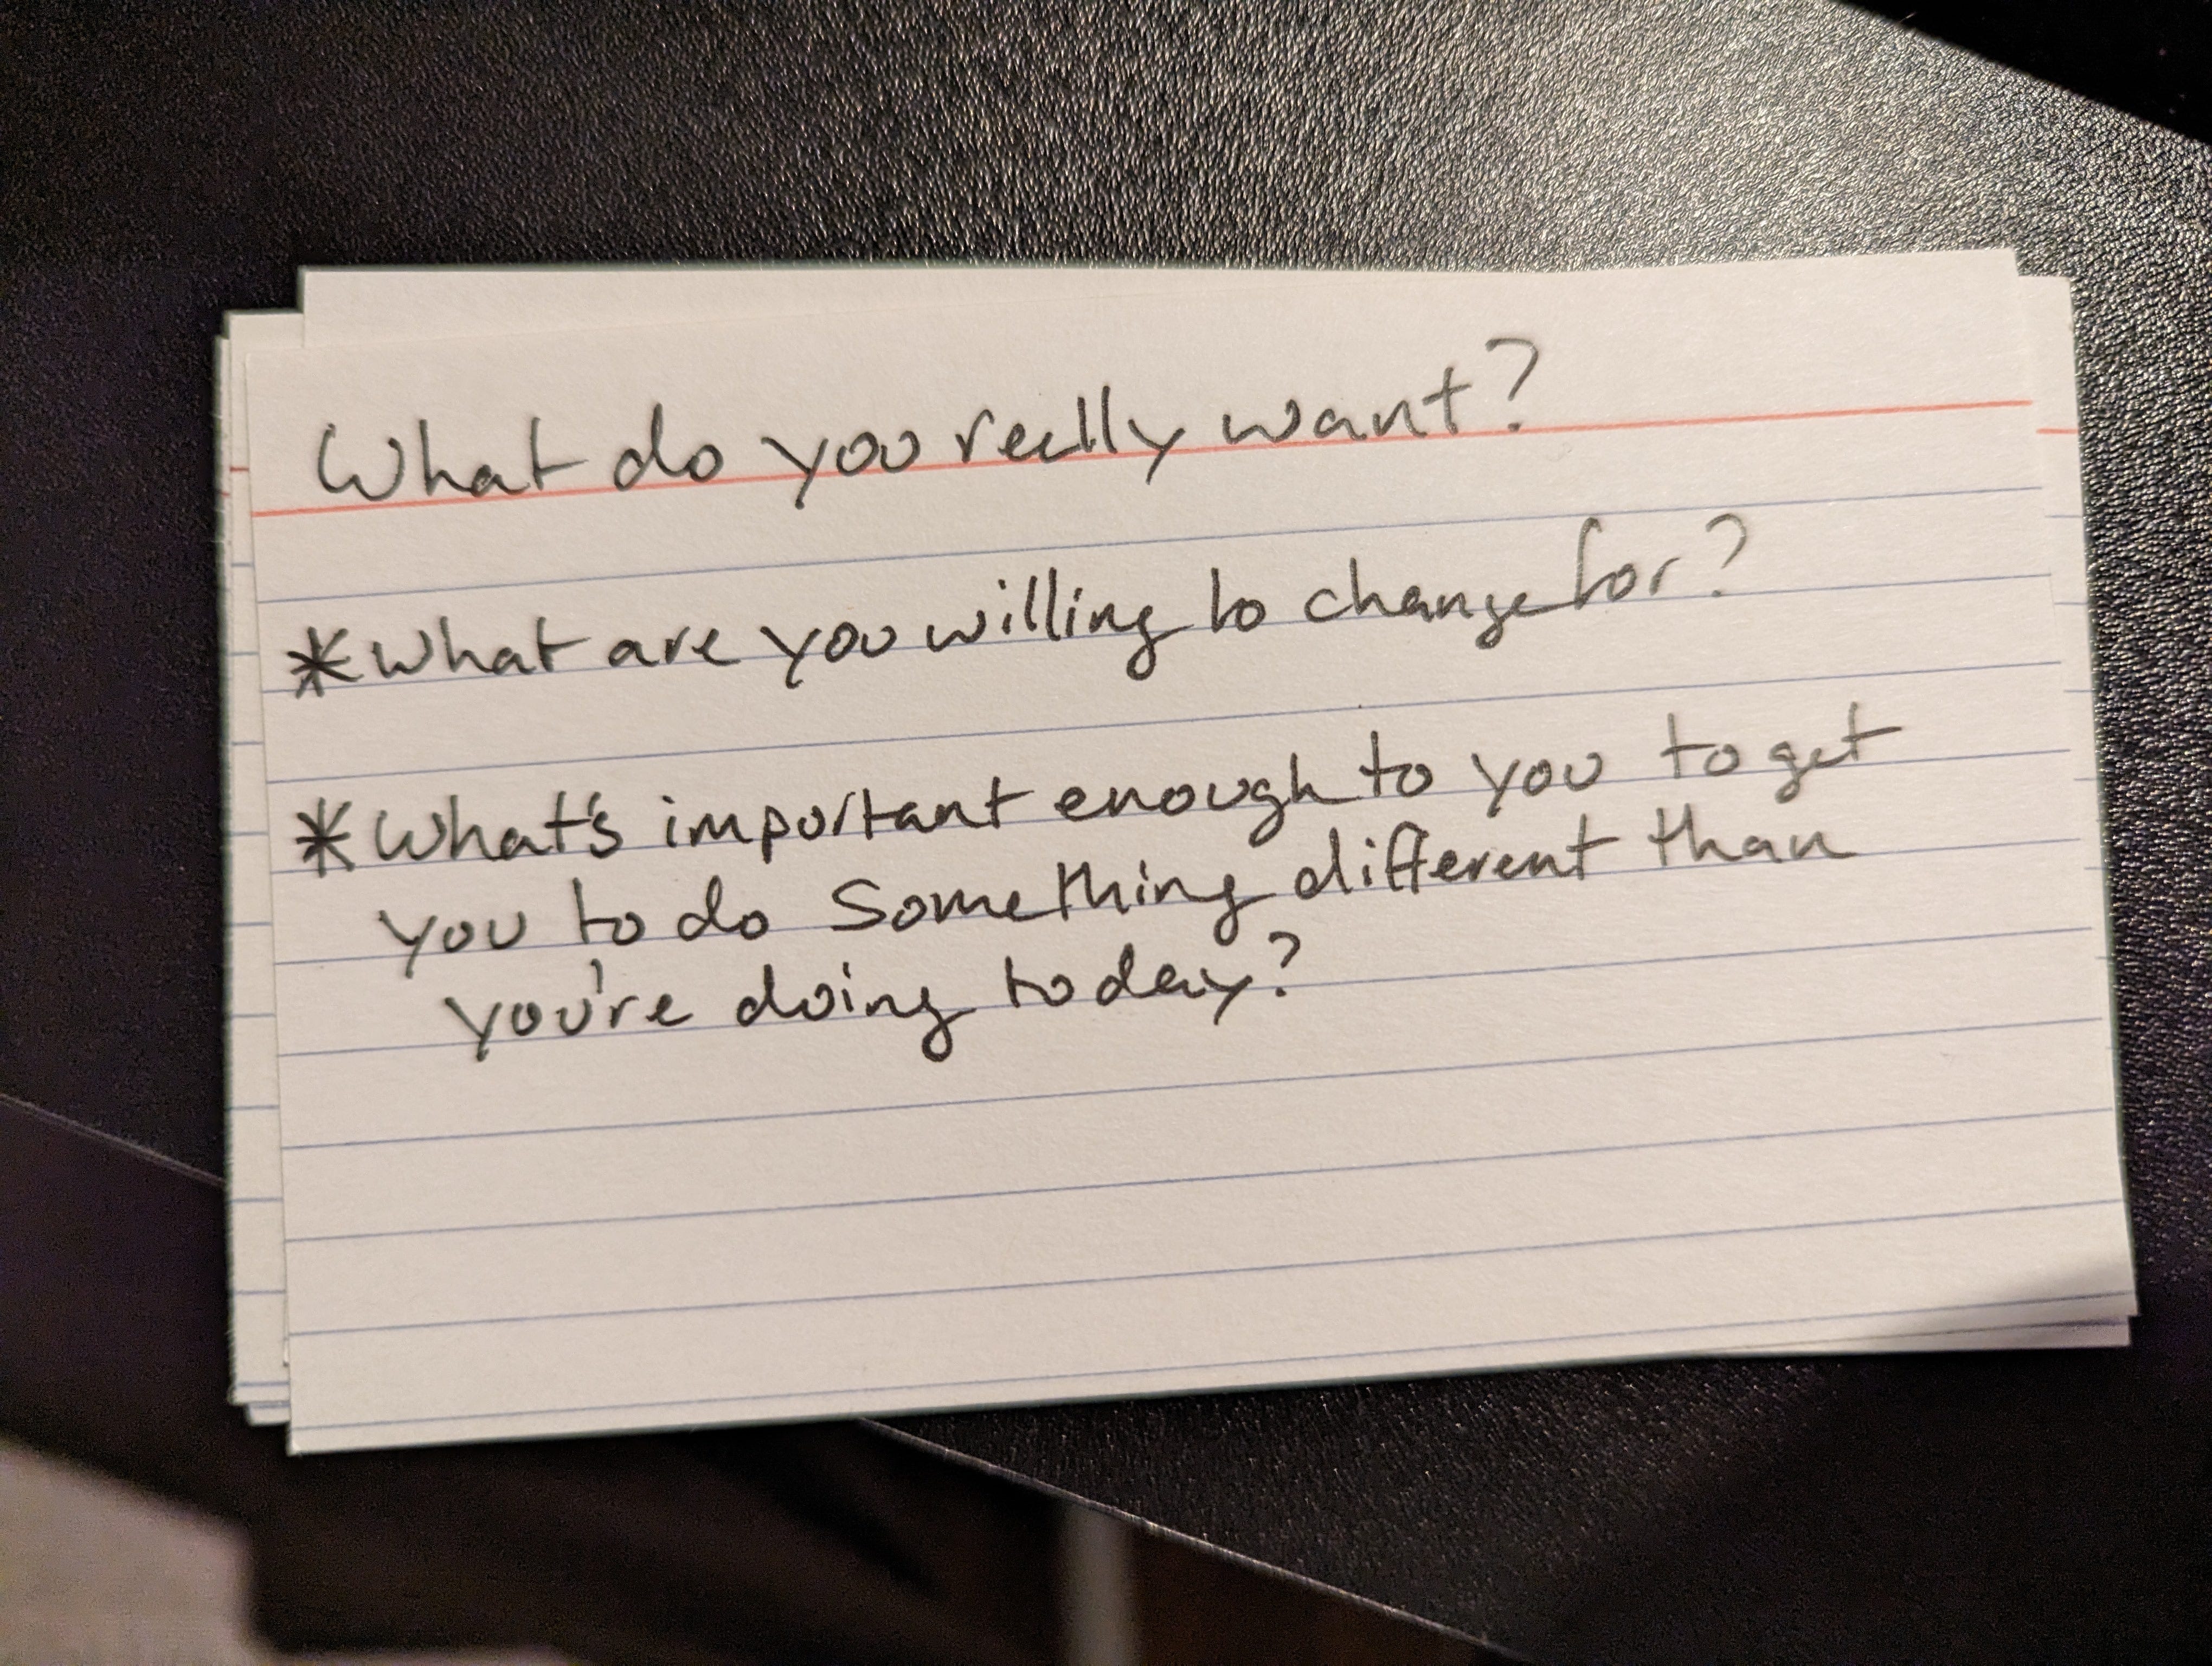 What do you really want?
*What are you willing to change for?
*What's important enough to you to get
you to do something different than
you're doing today?